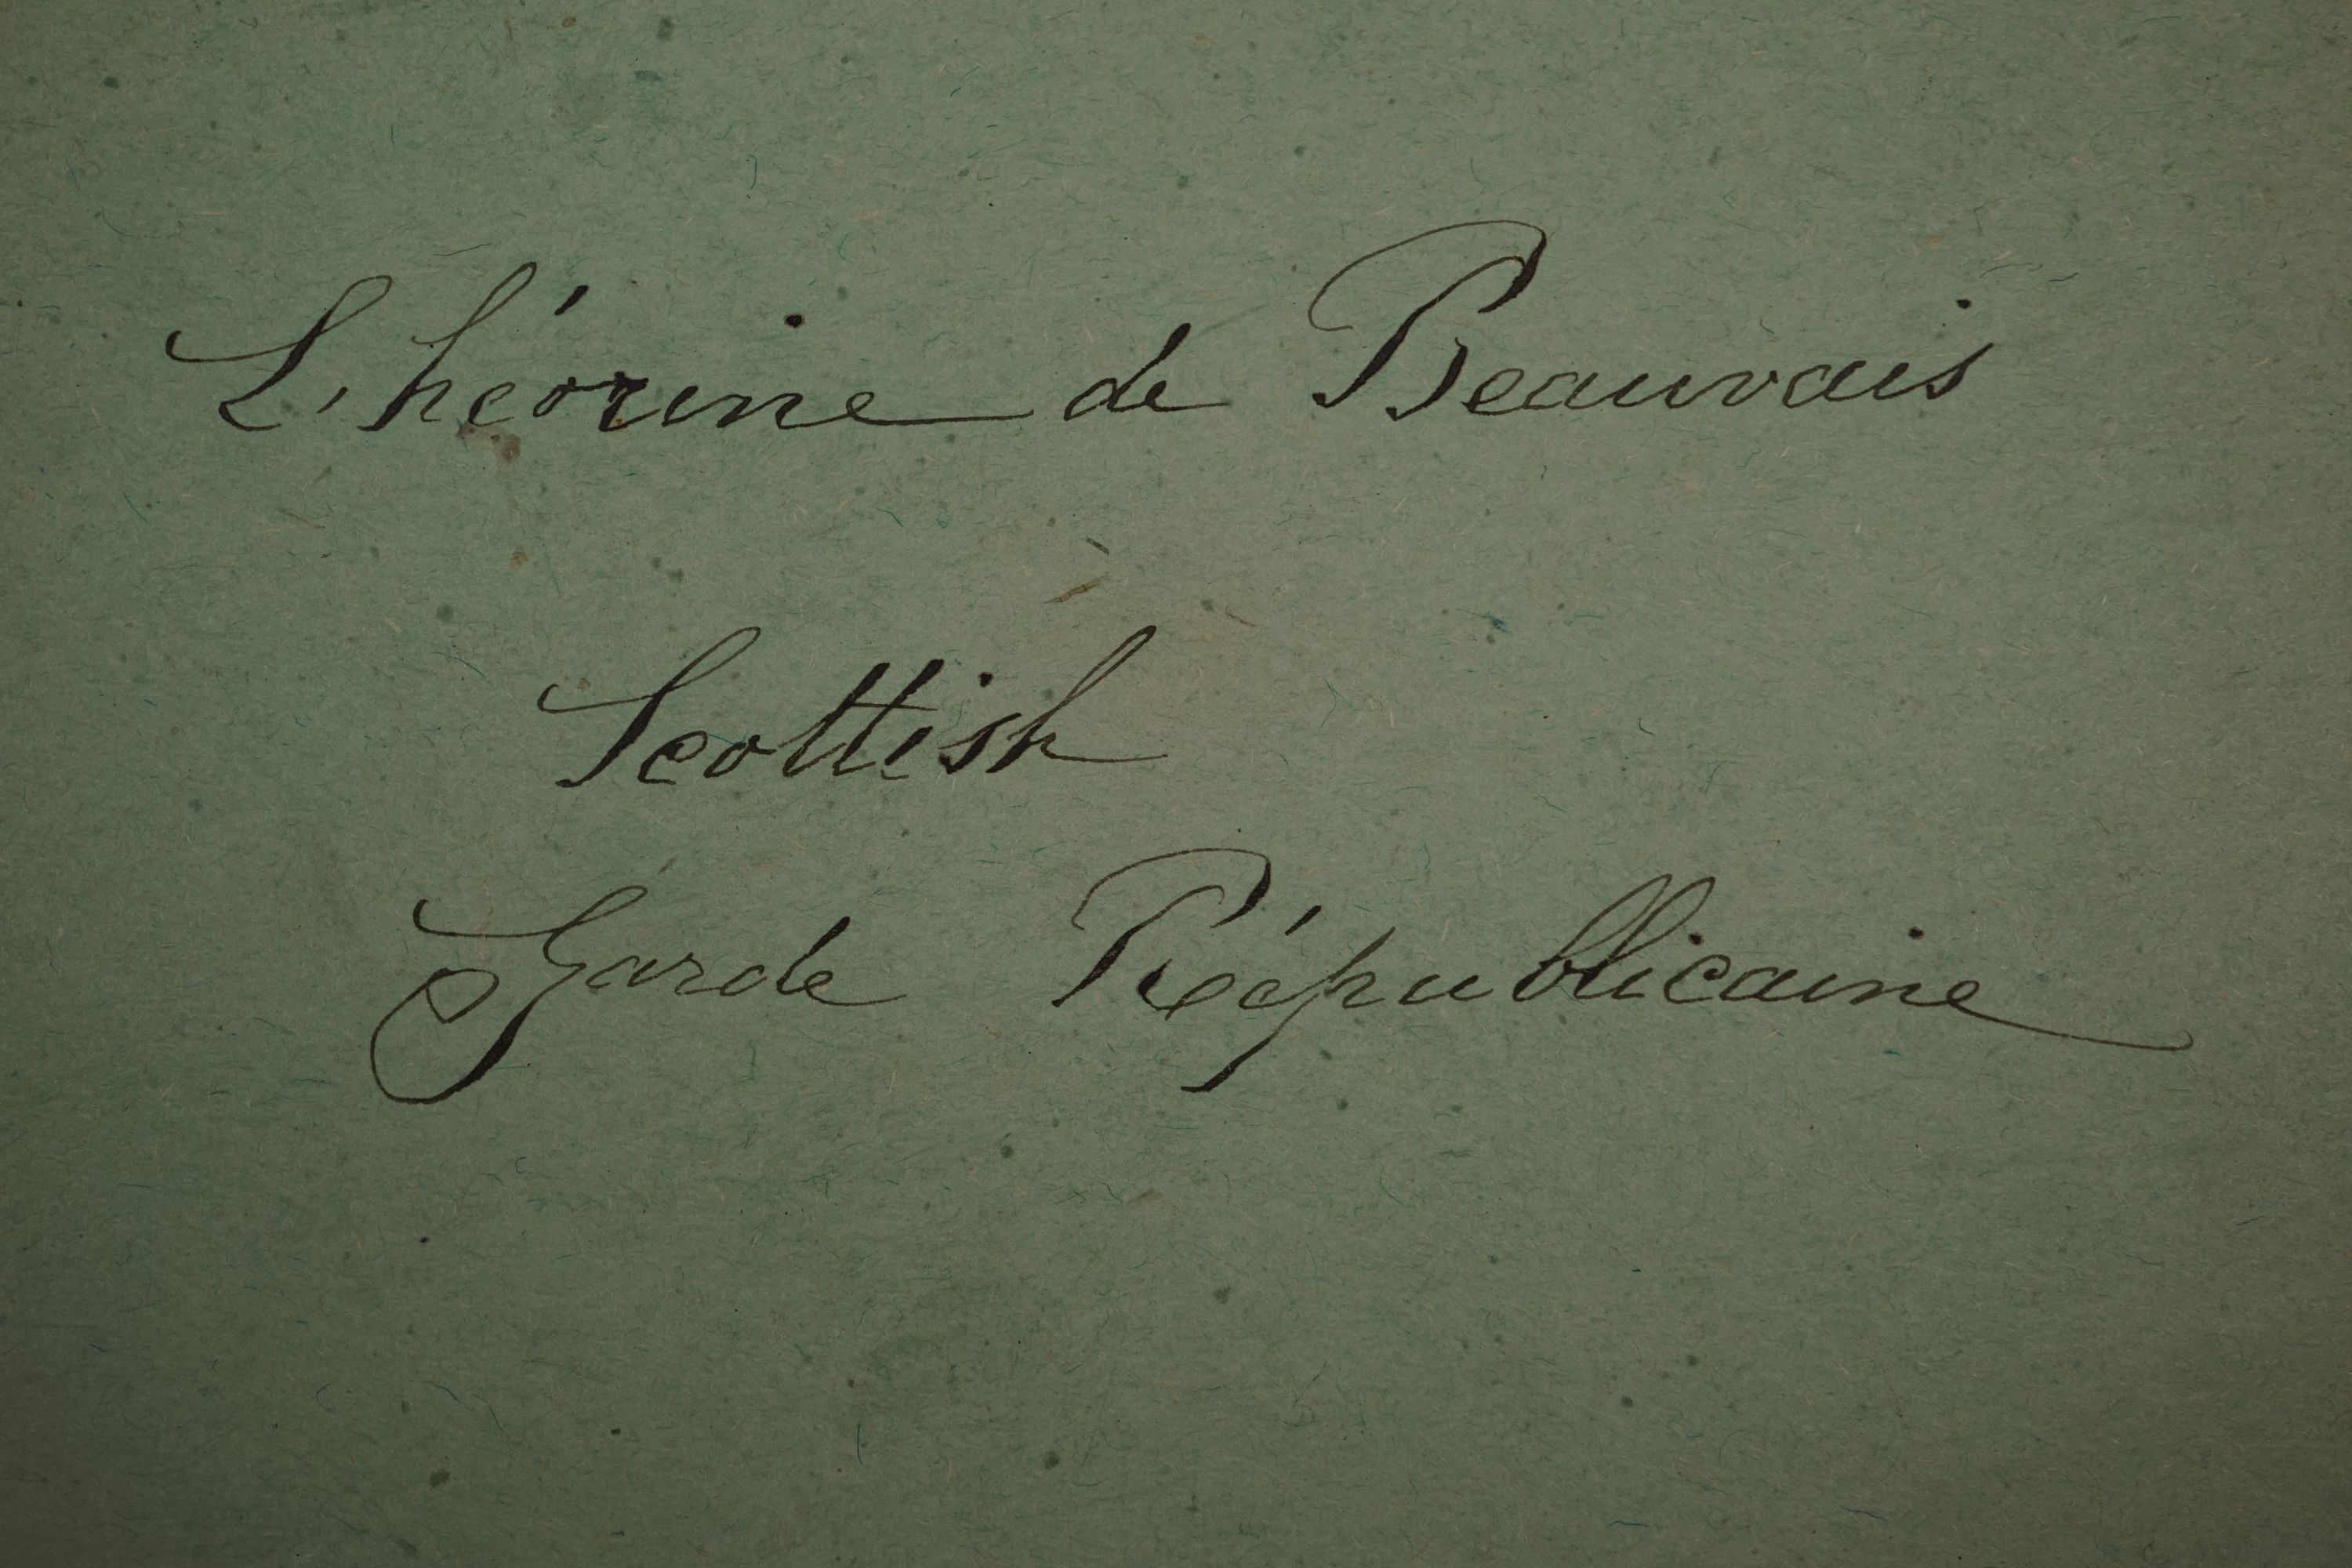 L'héorine de Beauvais
Scottish
Garde Républicaine